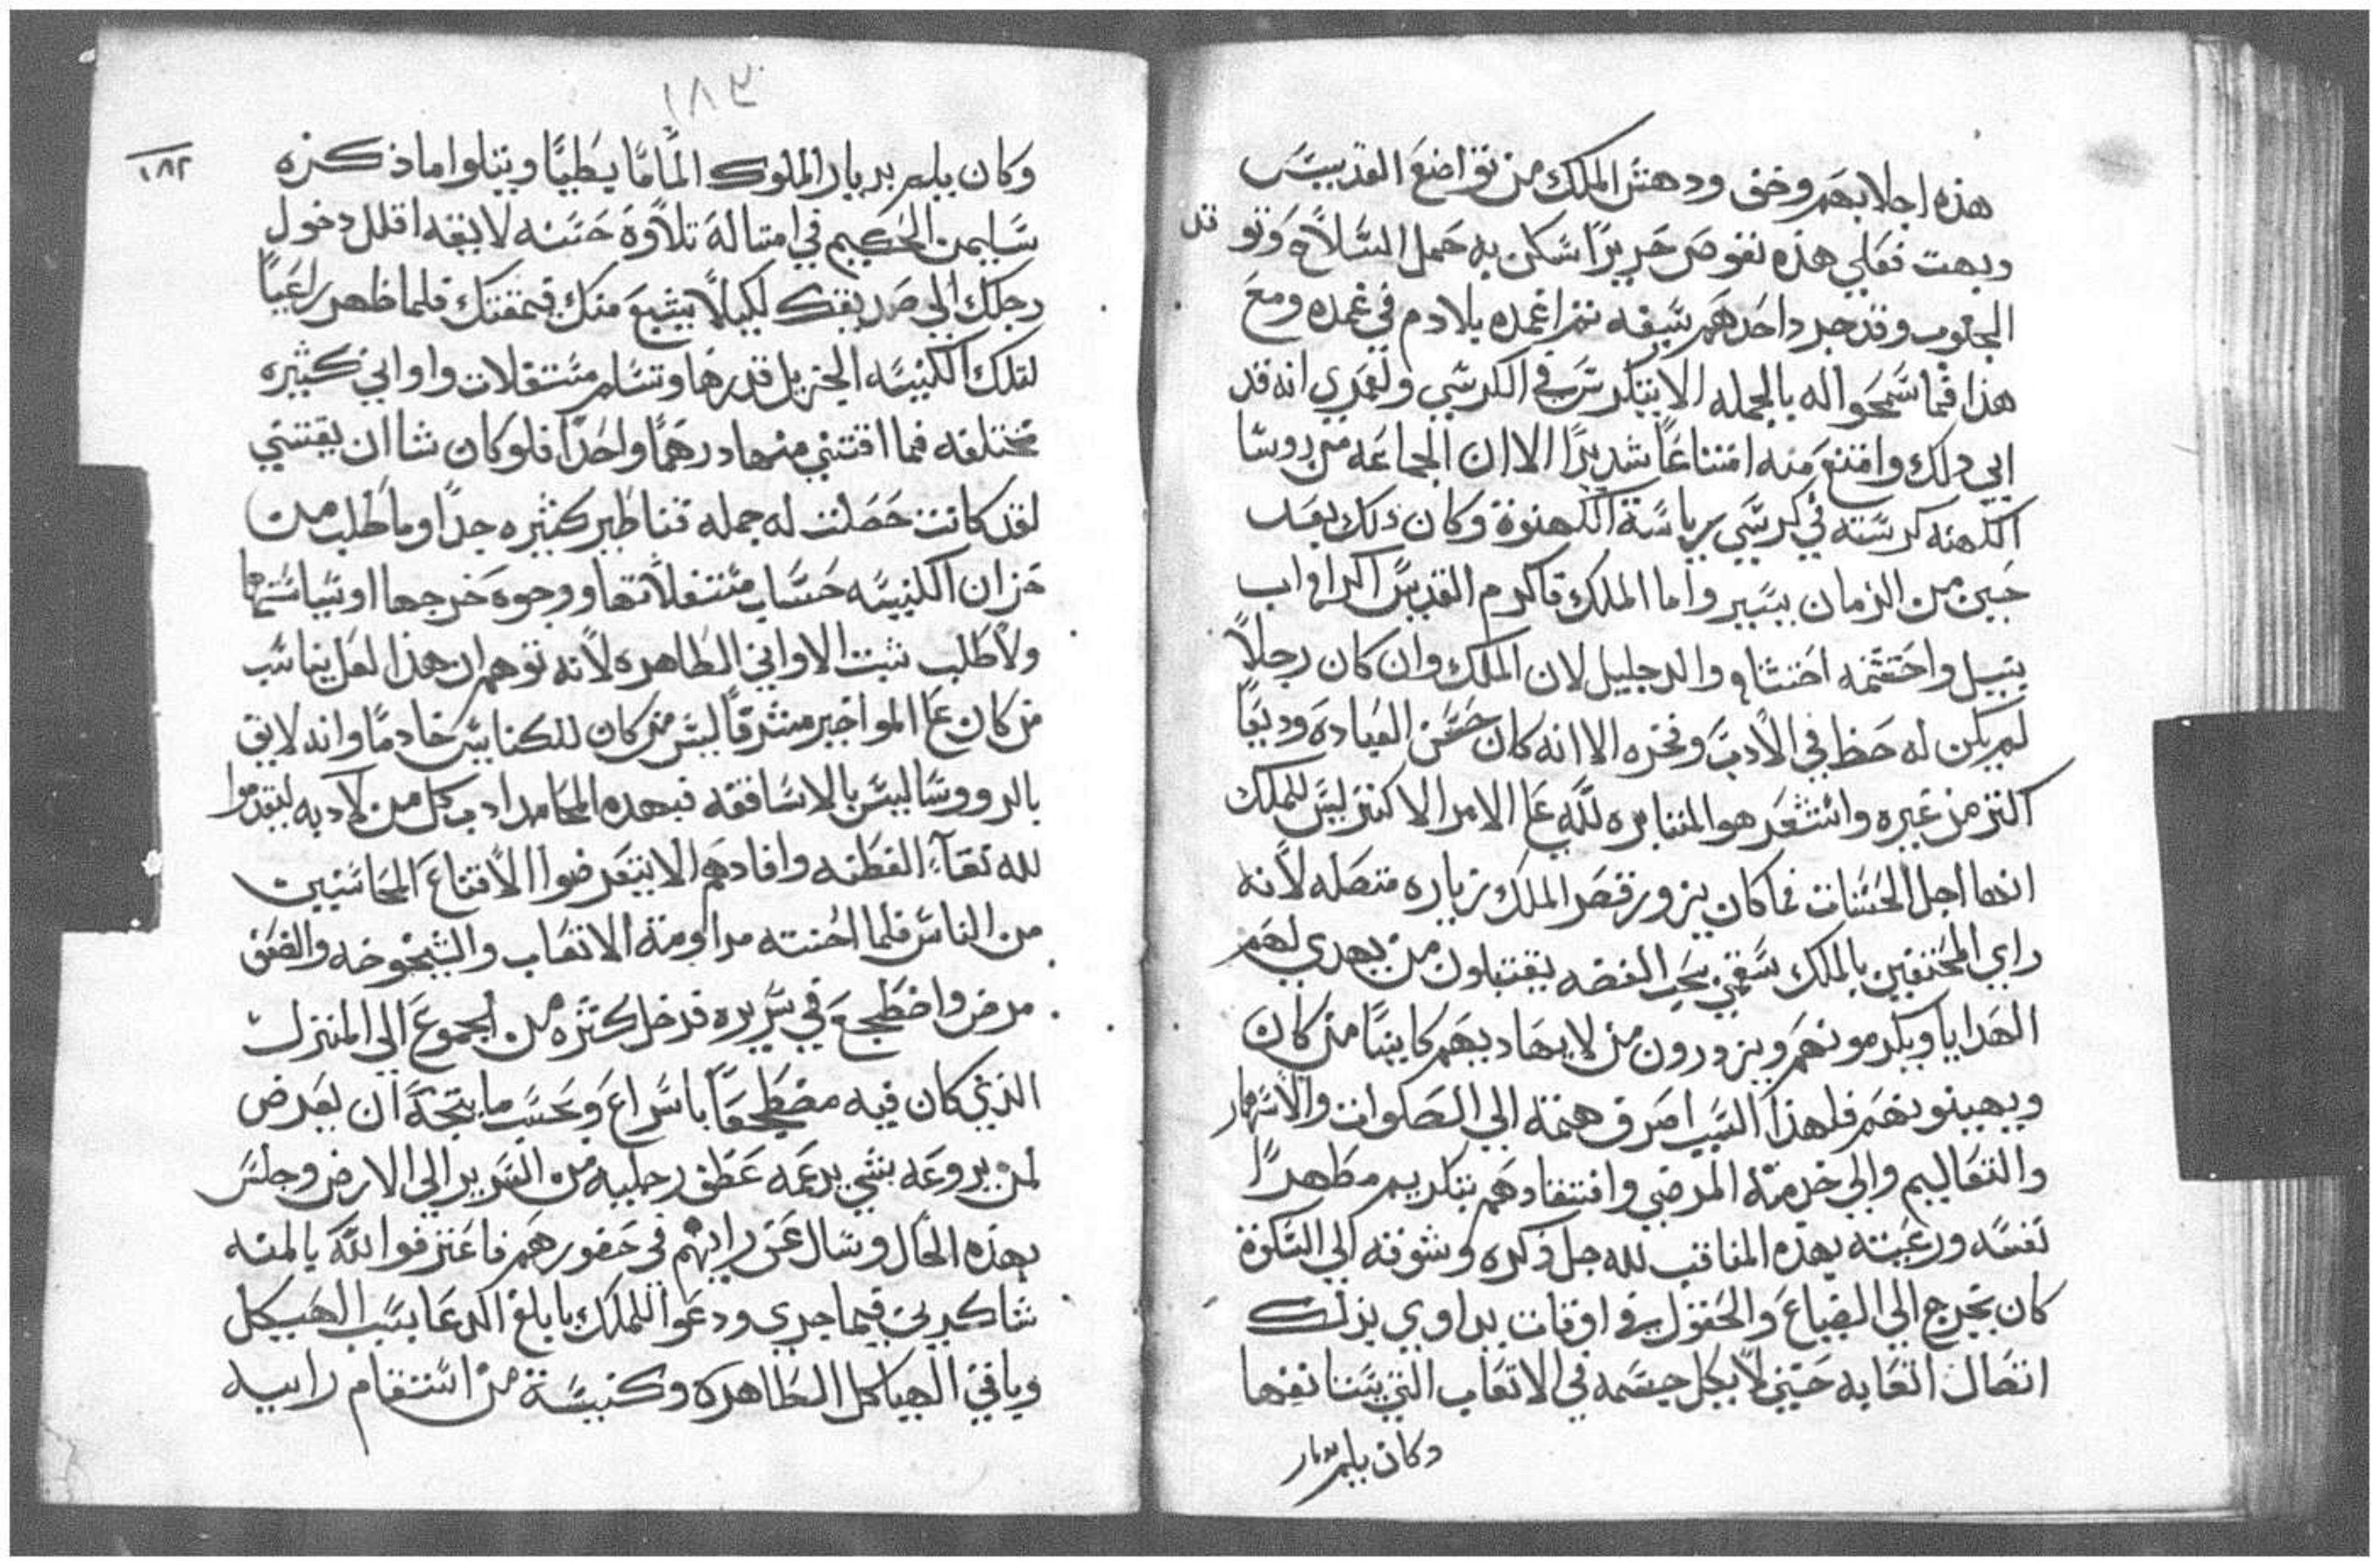 هذه اجلابهم وخف ودهش الملك من تواضع القديس
وبهت فعلي هذه تقوض حريزا شكل به حمل السلاح وتو قد
الجعوب وقد جرد احدهم سيفه ثم اغمده بلا دم في غمده ومع
هذا فما سمحوا له بالجمله الا يتكرس في الكرسي ولعمري انه قد
ابي ذلك وامتنع منه امتناعا شديدا الا ان الجماعه من روسا
الكهنه كرسته في كرسي برياسة الكهنوة وكان ذلك بعد
حين من الزمان يسير واما الملك فاكرم القديس اكرام اب
نبيل واحتشمه احتشام والد جليل لان الملك وان كان رجلا
لم يكن له حظ في الادب ونحره الا انه كان حسن العباده وديعا
اكثر من غيره واستشعر هو المثابره لله علي الامر الاكثر ليس للملك
انها اجل الحسنات فما كان يزور قصر الملك زياره متصله لانه
راي المحتفين بالملك سقمي بحب الفضه يقتبلون من يهدي لهم
الهدايا ويكرمونهم ويزدرون من لا يهاديهم كاينا من كان
ويهينونهم فلهذا السبب اصرف همته الي الصلوات والاسهار
والتعاليم والي خدمة المرضي وافتقادهم بتكريم مطهرا
نفسه ورغبته بهذه المناقب لله جل ذكره وشوقه الي السكوة
كان يخرج الي الضياع والحقول في اوقات يداوي بذلك
اتصال اتعابه حتي لا يكل جسمه في الاتعاب التي يستانفها
وكان يلم بديار
١٨٣
١٨٢
وكان يلم بديار الملوك الماما بطيا ويتلوا ما ذكره
سليمن الحكيم في امتاله تلاوة حسنه لايقه اقلل دخول
رجلك الي صديقك لكيلا يشبع منك فيمقتك فلما ظهر راعيا
لتلك الكنيسه الجزيل قدرها وتسلم مستغلات واواني كثيره
مختلفه فما اقتني منها درهما واحدا فلو كان شا ان يقتني
لقد كانت حصلت له جمله قناطير كثيره جدا وما طلب من
خزان الكنيسه حساب مستغلاتها ووجوه خرجها او سياستها
ولا طلب ثبت الاواني الطاهره لانه توهم ان هذا لعل يناسب
من كان علي المواخير مشرفا ليس من كان للكنايس خادما وانه لايق
بالرووسا ليس بالاساقفه فبهذه المحامد ادب كل من لاذ به ليقدموا
لله تعاء الفطنه وافادهم الا يتعرضوا الاقناع المحاسبين
من الناس فلما احنته مداومة الاتعاب والشيخوخه والضعف
مرض واضطجع في سريره فدخل كثره من الجموع الي المنزل
الذي كان فيه مضطجعا باسراع وبحسب ما يتجه ان يعرض
لمن يروعه بشي يدعمه عطف رجليه من السرير الي الارض وجلس
بهذه الحال وسال عن رايهم في حضورهم فاعترفوا لله بالمنه
شاكرين فيما جري ودعوا للملك بابلغ الدعا بسبب الهيكل
وباقي الهياكل الطاهره وكنيسة من استقام راييه